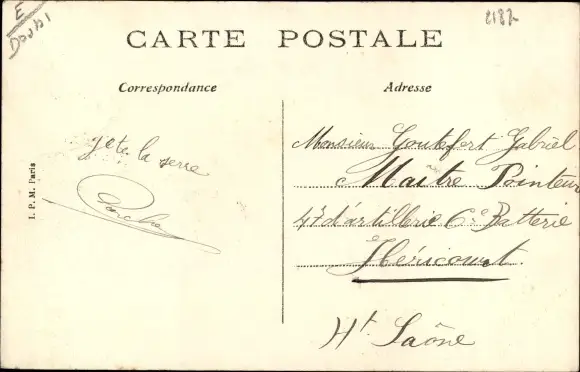 E
Doubs
2187
CARTE POSTALE
Correspondance
Adresse
I. P. M. Paris
Je te la serre
Monsieur Goutefort Gabriel
Maître Pointeur
47e d'artillerie 6e Batterie
Héricourt.
Ht Saône